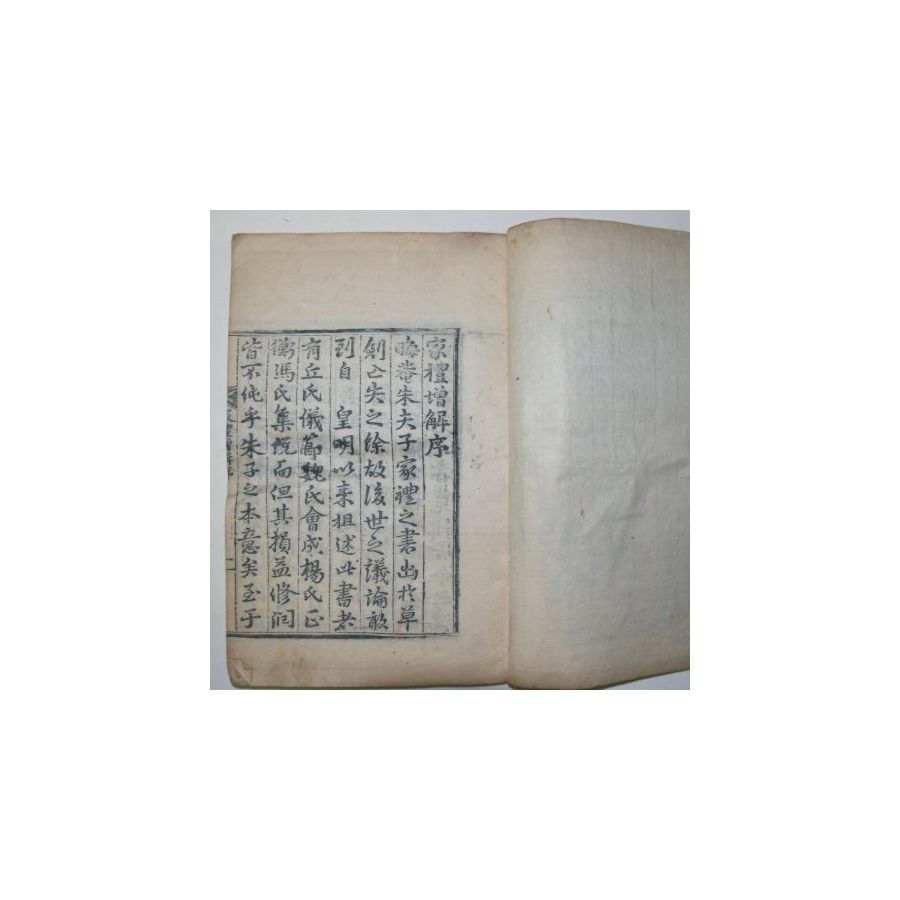 家禮增解序
晦菴朱夫子家禮之書出於草
創亡失之餘故後世之議論敢
到自 皇明以來祖述此書者
有丘氏儀節魏氏會成楊氏正
衡馮氏集說而但其損益修潤
皆不純乎朱子之本意矣至于